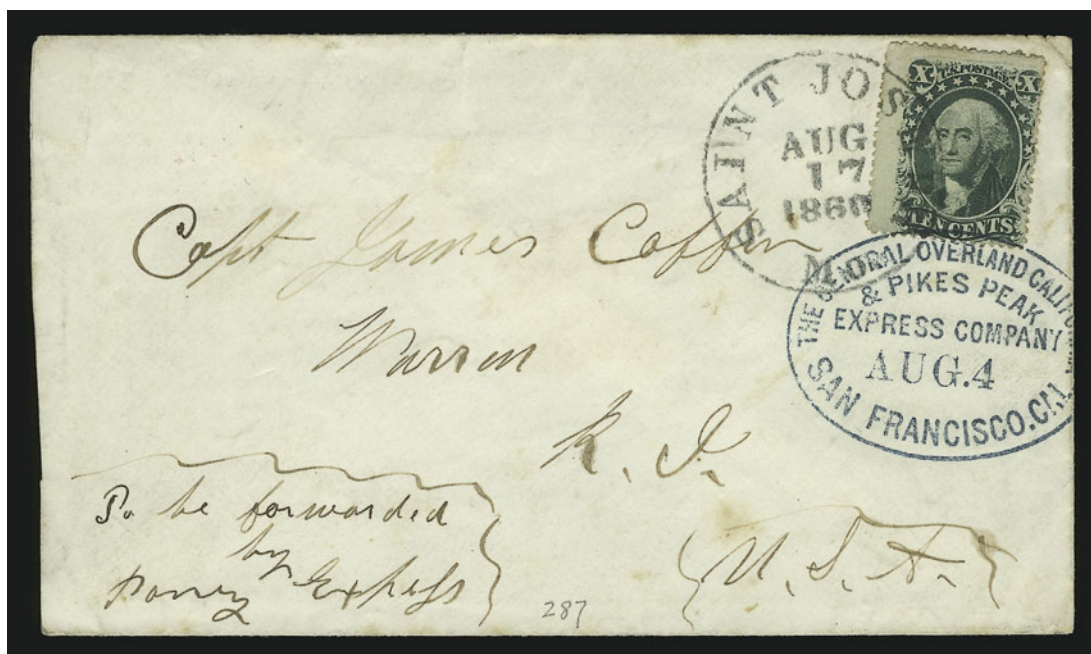 SAINT JOS
AUG
17
1860
MO.
X U.S. POSTAGE X
TEN CENTS
THE CENTRAL OVERLAND CALIFORNIA
& PIKES PEAK
EXPRESS COMPANY
AUG.4
SAN FRANCISCO.CAL
Capt James Coffin
Warren
R. I.
U. S. A.
To be forwarded
by
Poney Express
287